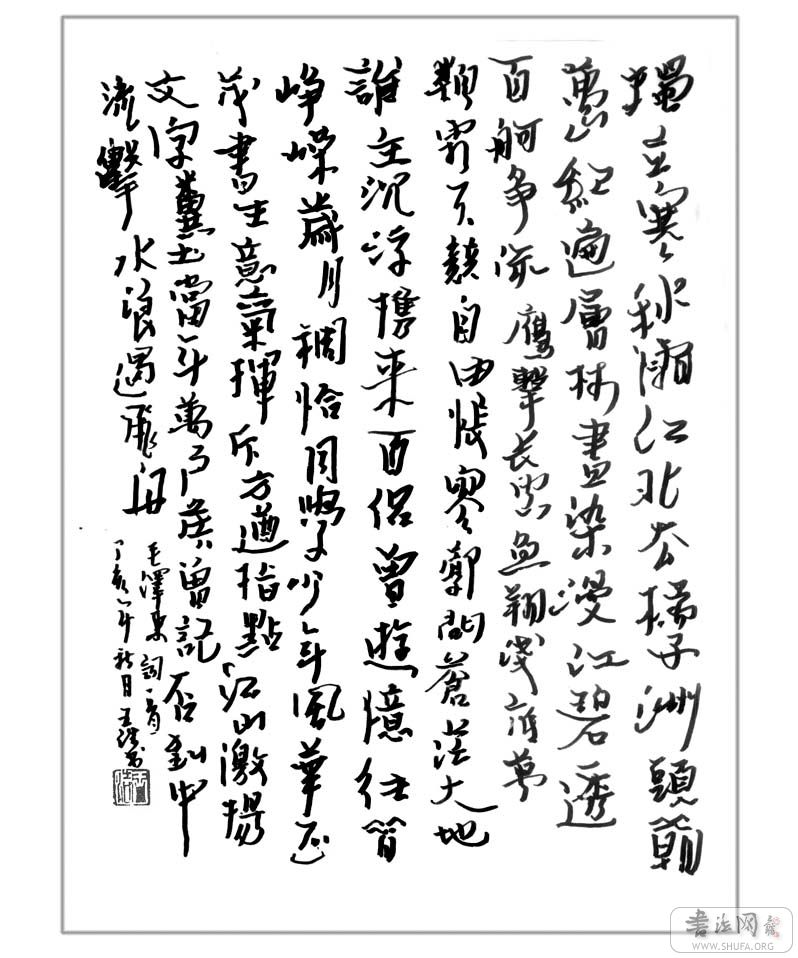 獨立寒秋湘江北去橘子洲頭看
萬山紅遍層林盡染漫江碧透
百舸爭流鷹擊長空魚翔淺底萬
類霜天競自由悵寥廓問蒼茫大地
誰主沉浮攜來百侶曾遊憶往昔
崢嶸歲月稠恰同學少年風華正
茂書生意氣揮斥方遒指點江山激揚
文字糞土當年萬戶侯曾記否到中
流擊水浪遏飛舟
毛澤東詞一首
丁亥年月王浩書
書法网
WWW.SHUFA.ORG